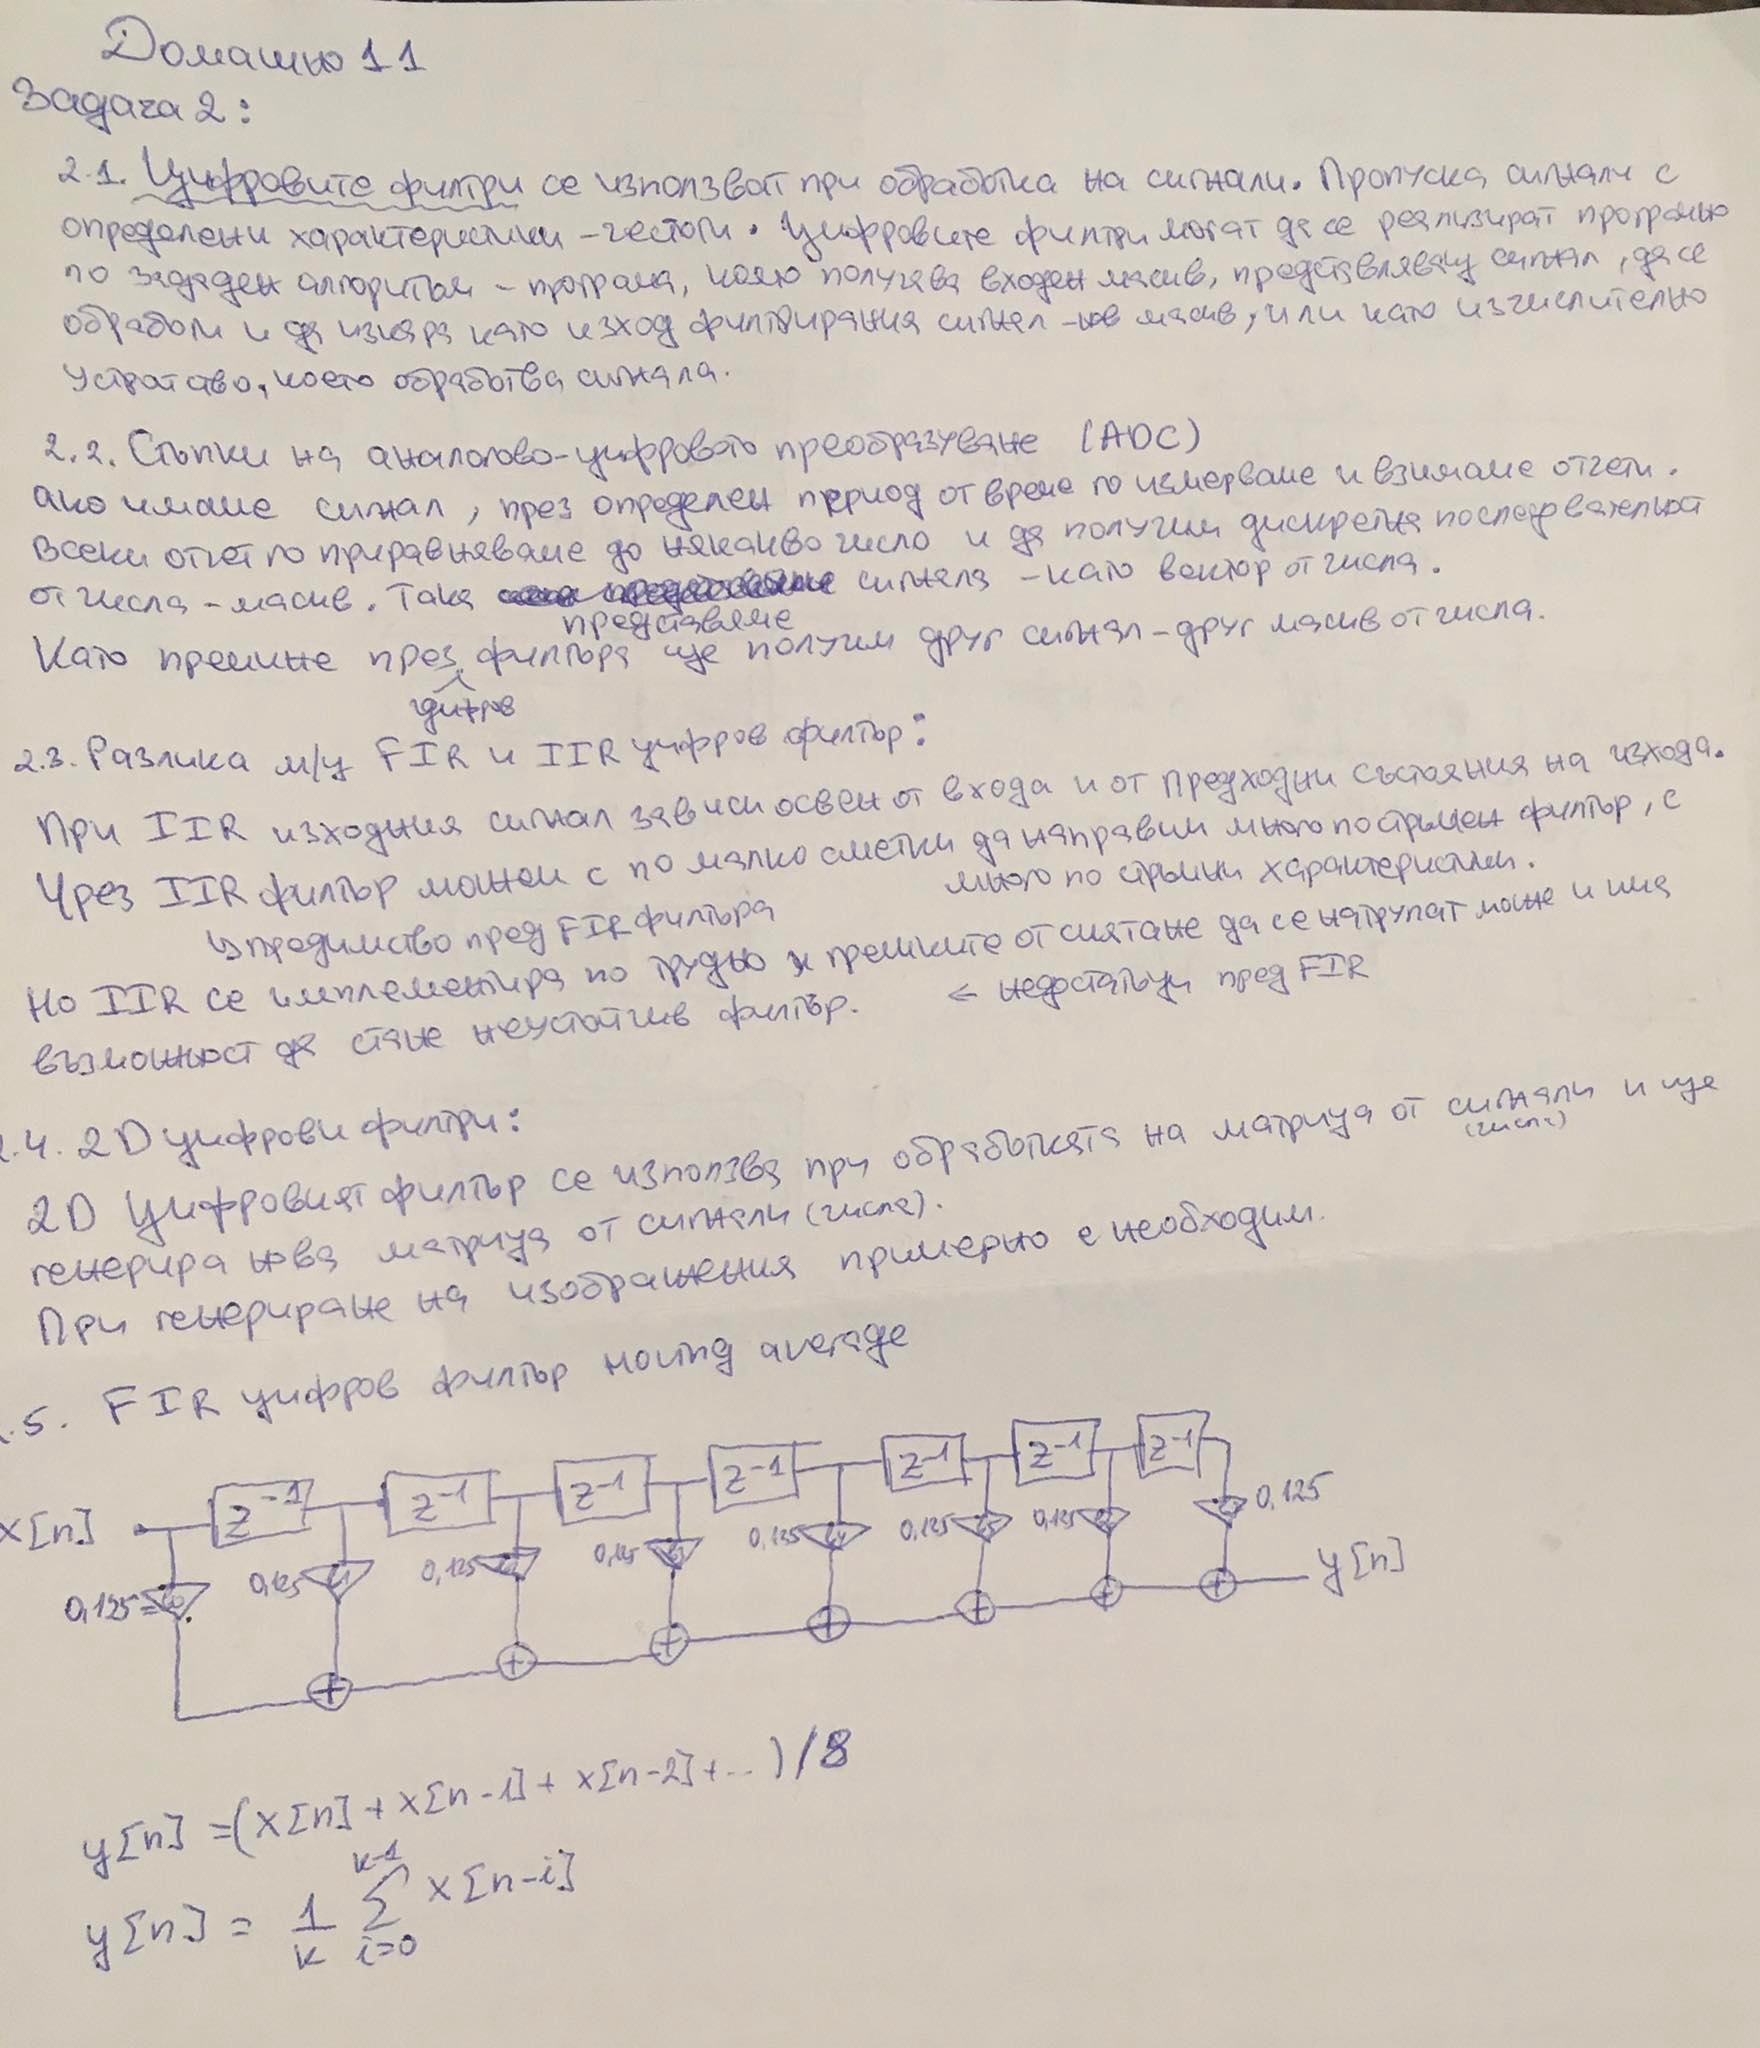 Домашно 11
Задача 2:
2.1. Цифровите филтри се използват при обработка на сигнали. Пропуска сигнали с
определени характеристики - честоти. Цифровите филтри могат да се реализират програмно
по зададен алгоритъм - програма, която получава входен масив, представляващ сигнал, да се
обработи и да изкара като изход филтрирания сигнал - нов масив, или като изчислително
устройство, което обработва сигнала.
2.2. Стъпки на аналогово-цифровото преобразуване (ADC)
ако имаме сигнал, през определен период от време го измерваме и взимаме отчети.
Всеки отчет го приравняваме до някакво число и да получим дискретна последователност
от числа - масив. Така сигнала - като вектор от числа.
представяме
Като премине през филтъра ще получим друг сигнал - друг масив от числа.
цифров
2.3. Разлика м/у FIR и IIR цифров филтър:
При IIR изходния сигнал зависи освен от входа и от предходни състояния на изхода.
Чрез IIR филтър можем с по малко сметки да направим много по стръмен филтър, с
много по стръмни характеристики.
предимство пред FIR филтъра
Но IIR се имплементира по трудно и грешките от смятане да се натрупат може и има
възможност да стане неустойчив филтър. ← недостатъци пред FIR
.4. 2D цифрови филтри:
2D Цифровият филтър се използва при обработката на матрица от сигнали и ще
(числа)
генерира нова матрица от сигнали (числа).
При генериране на изображения примерно е необходим.
.5. FIR цифров филтър moving average
x[n] z⁻¹ z⁻¹ z⁻¹ z⁻¹ z⁻¹ z⁻¹ z⁻¹
0,125 0,125 0,125 0,125 0,125 0,125 0,125 0,125
+ + + + + + + y[n]
y[n] = (x[n] + x[n-1] + x[n-2] + ...) / 8
y[n] = 1/k ∑ᵢ₌₀ᵏ⁻¹ x[n-i]